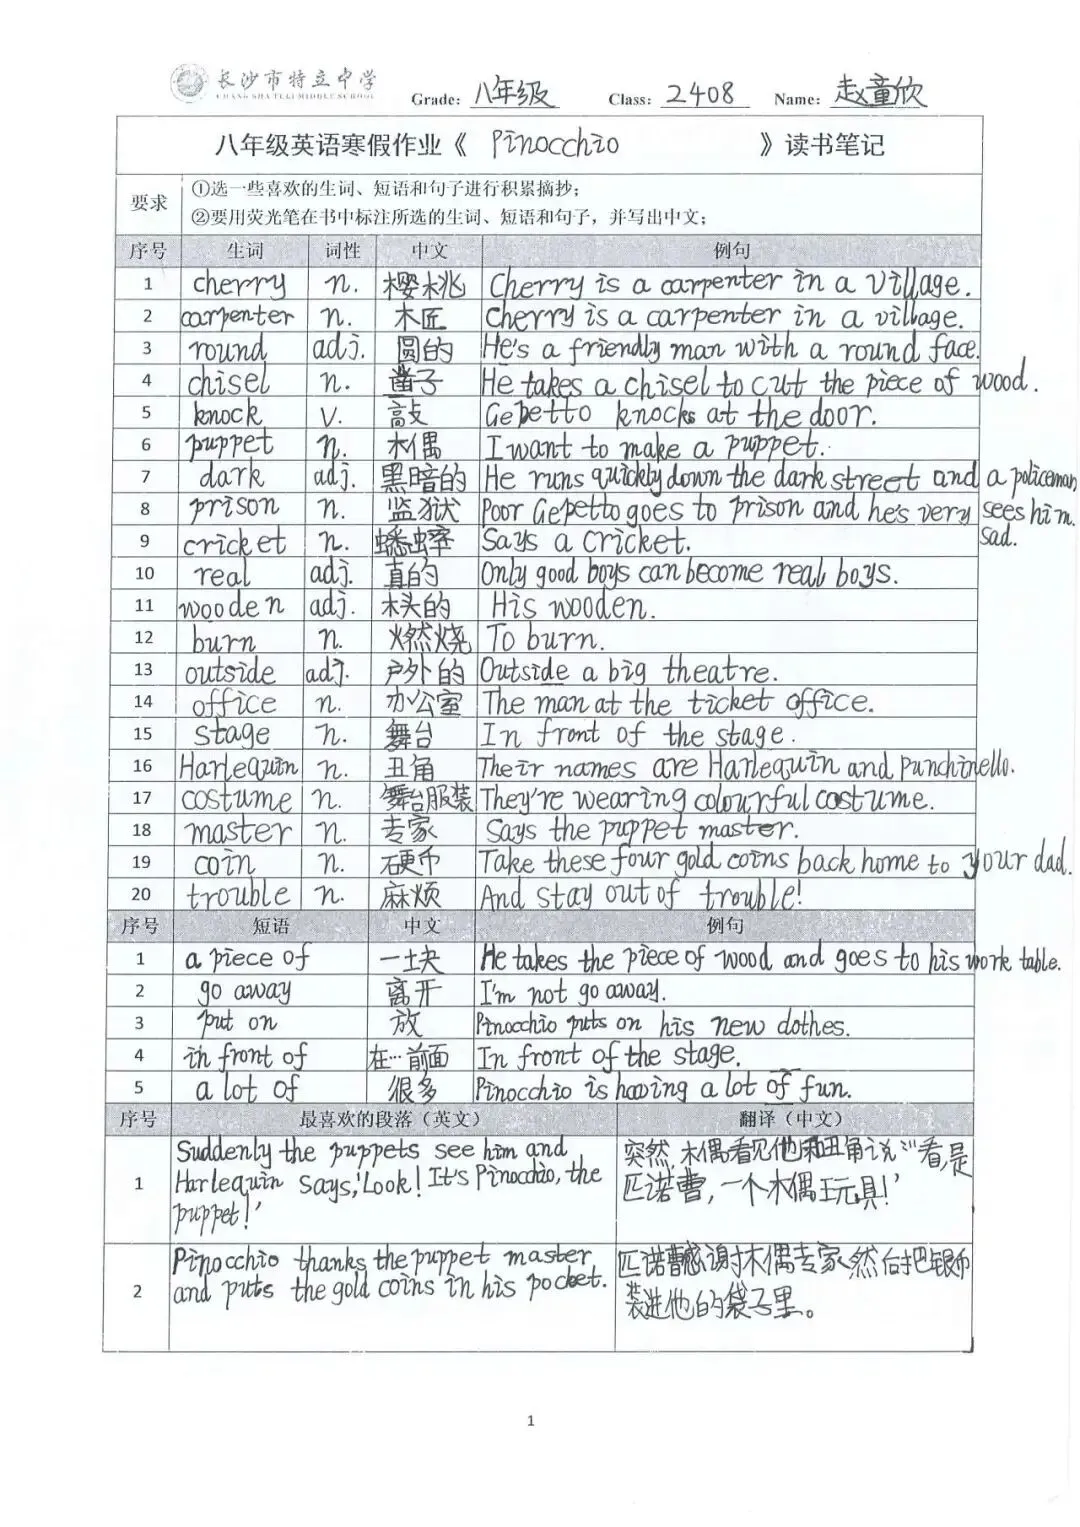 长沙市特立中学
CHANG SHA TELI MIDDLE SCHOOL
Grade: 八年级 Class: 2408 Name: 赵童欣
八年级英语寒假作业《 Pinocchio 》读书笔记
要求 ①选一些喜欢的生词、短语和句子进行积累摘抄；
②要用荧光笔在书中标注所选的生词、短语和句子，并写出中文；
序号 生词 词性 中文 例句
1 cherry n. 樱桃 Cherry is a carpenter in a village.
2 carpenter n. 木匠 Cherry is a carpenter in a village.
3 round adj. 圆的 He's a friendly man with a round face.
4 chisel n. 凿子 He takes a chisel to cut the piece of wood.
5 knock v. 敲 Gepetto knocks at the door.
6 puppet n. 木偶 I want to make a puppet.
7 dark adj. 黑暗的 He runs quickly down the dark street and a policeman sees him.
8 prison n. 监狱 Poor Gepetto goes to prison and he's very sad.
9 cricket n. 蟋蟀 Says a cricket.
10 real adj. 真的 Only good boys can become real boys.
11 wooden adj. 木头的 His wooden.
12 burn n. 燃烧 To burn.
13 outside adj. 户外的 Outside a big theatre.
14 office n. 办公室 The man at the ticket office.
15 stage n. 舞台 In front of the stage.
16 Harlequin n. 丑角 Their names are Harlequin and Punchinello.
17 costume n. 舞台服装 They're wearing colourful costume.
18 master n. 专家 Says the puppet master.
19 coin n. 硬币 Take these four gold coins back home to your dad.
20 trouble n. 麻烦 And stay out of trouble!
序号 短语 中文 例句
1 a piece of 一块 He takes the piece of wood and goes to his work table.
2 go away 离开 I'm not go away.
3 put on 放 Pinocchio puts on his new clothes.
4 in front of 在…前面 In front of the stage.
5 a lot of 很多 Pinocchio is having a lot of fun.
序号 最喜欢的段落（英文） 翻译（中文）
1 Suddenly the puppets see him and
Harlequin says,'Look! It's Pinocchio, the
puppet!'
突然,木偶看见他和丑角说“看,是
匹诺曹，一个木偶玩具!'
2 Pinocchio thanks the puppet master
and puts the gold coins in his pocket.
匹诺曹感谢木偶专家,然后把银币
装进他的袋子里。
1